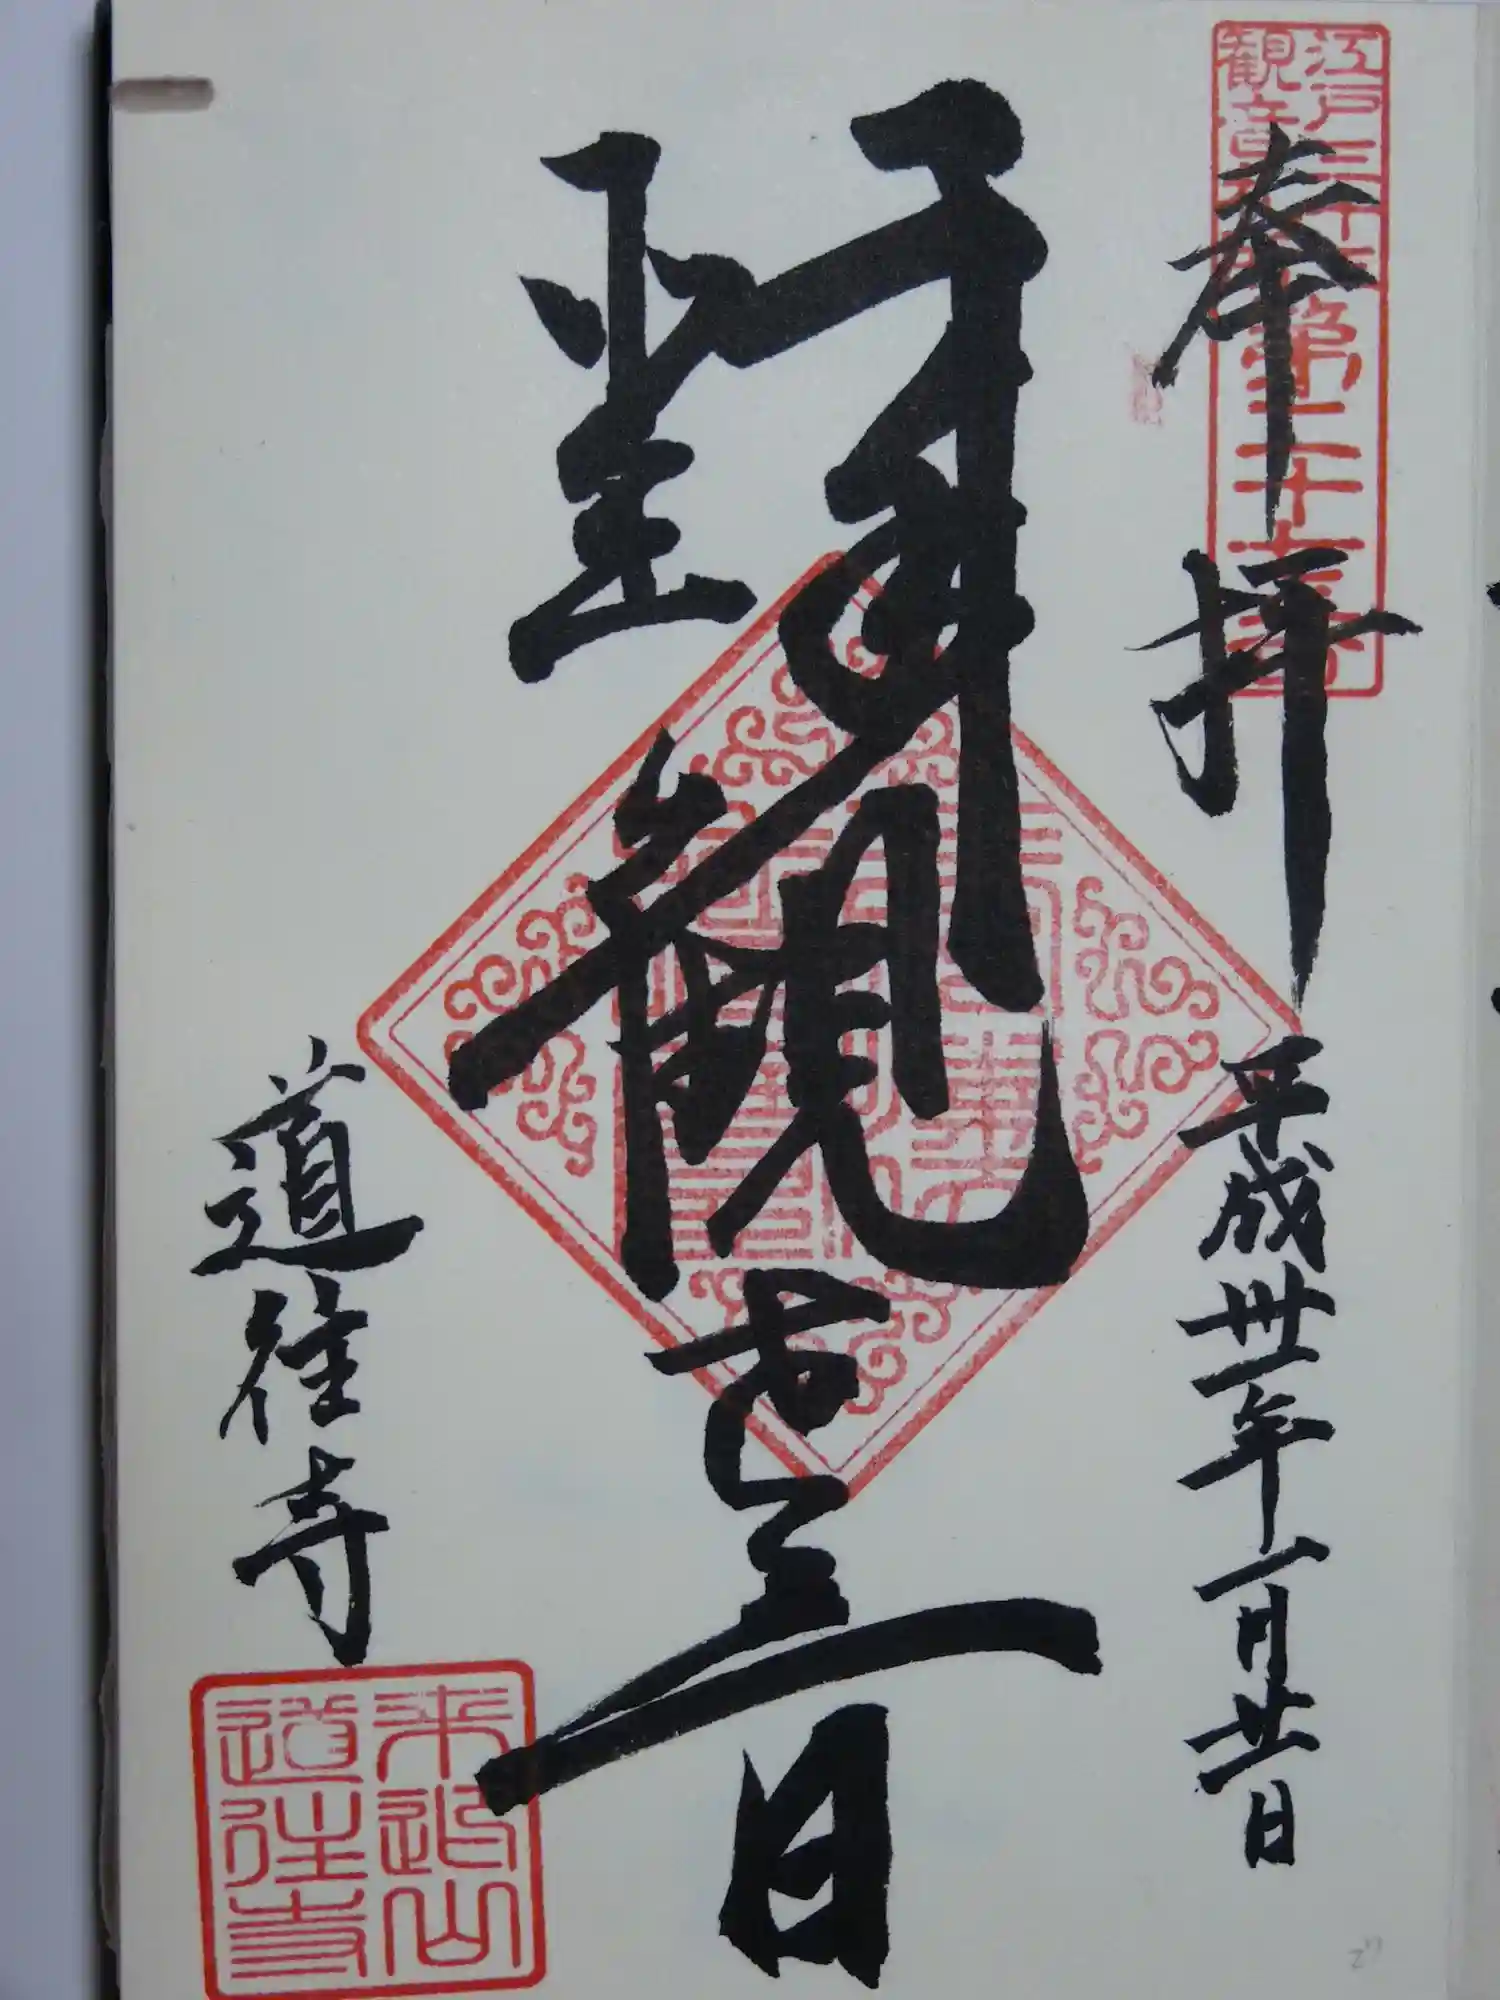 江戸三十三
観音札所
第二十七番
奉拝
平成卅年一月廿日
聖観世音
道往寺
来迎山
道往寺
27